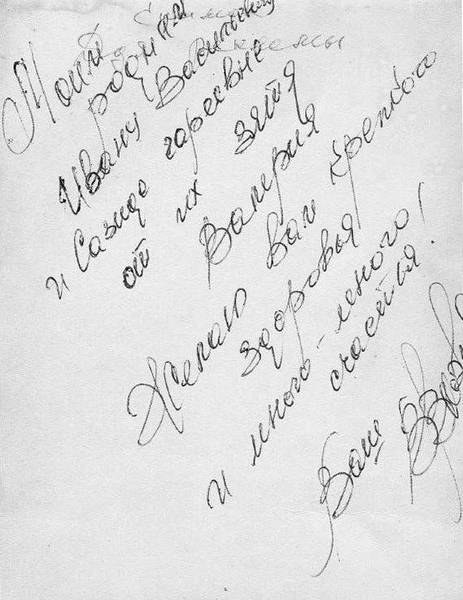 Моим
родным
Ивану Васильевичу
и Саиде Гареевне
от их зятя
Валерия
Желаю вам крепкого
здоровья
и много-много
счастья!
Ваш